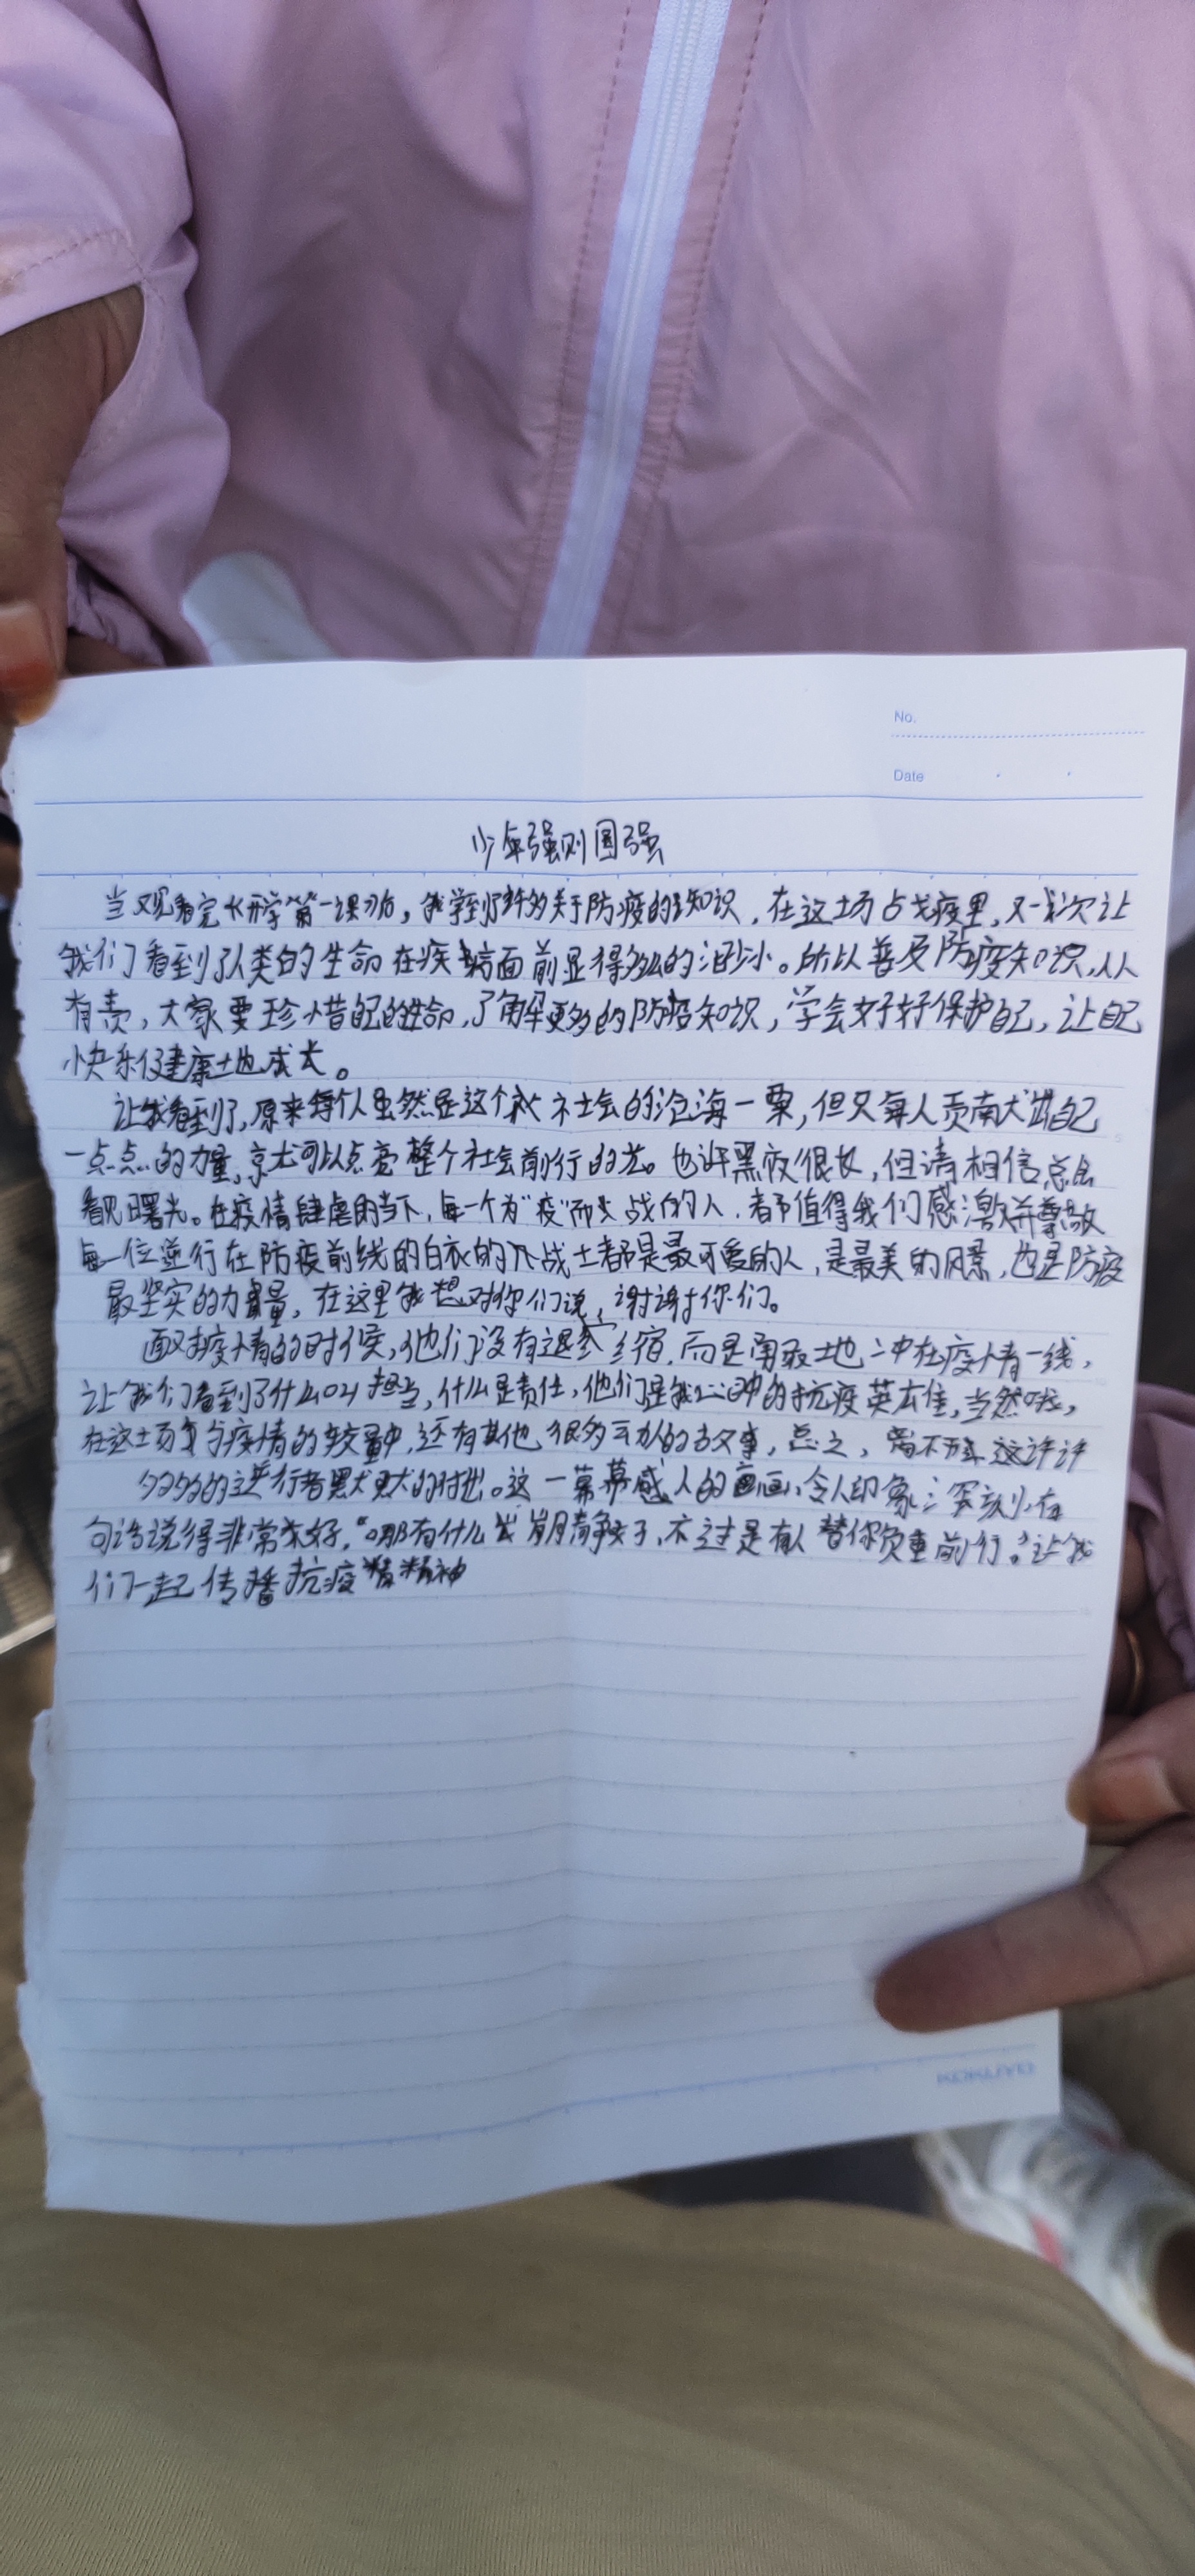 No.
Date
少年强则国强
当观看完《开学第一课》后，我学到了许多关于防疫的知识，在这场占戈疫里，又一次让
我们看到了人类的生命在疾病面前显得多么的渺小。所以普及防疫知识，人人
有责，大家要珍惜自己的生命，了解更多的防疫知识，学会好好保护自己，让自己
快乐健康地成长。
让我看到了，原来每个人虽然是这个社会的沧海一粟，但只每人贡献出自己
一点点的力量，就可以点亮整个社会前行的光。也许黑夜很长，但请相信总会
看见曙光。在疫情肆虐的当下，每一个为"疫"而战的人，都值得我们感激并尊敬
每一位逆行在防疫前线的白衣的战士都是最可爱的人，是最美的风景，也是防疫
最坚实的力量，在这里我想对你们说，谢谢你们。
面对疫情的时候，他们没有退缩，而是勇敢地冲在疫情一线，
让我们看到了什么叫担当，什么是责任，他们是我心中的抗疫英雄，当然啦，
在这场与疫情的较量中，还有其他很多动人的故事，总之，离不开这许许
多多的逆行者默默的付出。这一幕幕感人的画面，令人印象深刻，有
句话说得非常好，"哪有什么岁月静好，不过是有人替你负重前行。"让我
们一起传播抗疫精神